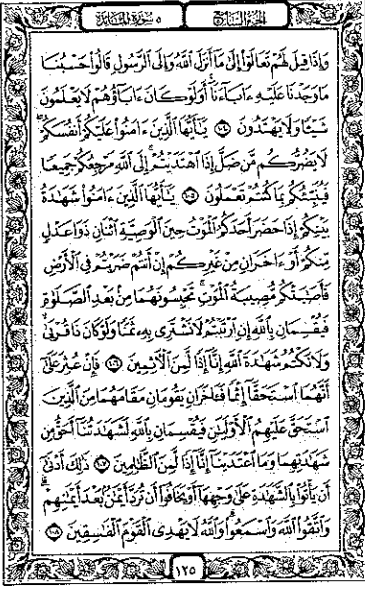 الجُزْءُ السَّابِعُ ٥ سُورَةُ المَائِدَةِ
وَإِذَا قِيلَ لَهُمْ تَعَالَوْا۟ إِلَىٰ مَآ أَنزَلَ ٱللَّهُ وَإِلَى ٱلرَّسُولِ قَالُوا۟ حَسْبُنَا
مَا وَجَدْنَا عَلَيْهِ ءَابَآءَنَآ أَوَلَوْ كَانَ ءَابَآؤُهُمْ لَا يَعْلَمُونَ
شَيْـًٔا وَلَا يَهْتَدُونَ ١٠٤ يَـٰٓأَيُّهَا ٱلَّذِينَ ءَامَنُوا۟ عَلَيْكُمْ أَنفُسَكُمْ
لَا يَضُرُّكُم مَّن ضَلَّ إِذَا ٱهْتَدَيْتُمْ إِلَى ٱللَّهِ مَرْجِعُكُمْ جَمِيعًا
فَيُنَبِّئُكُم بِمَا كُنتُمْ تَعْمَلُونَ ١٠٥ يَـٰٓأَيُّهَا ٱلَّذِينَ ءَامَنُوا۟ شَهَـٰدَةُ
بَيْنِكُمْ إِذَا حَضَرَ أَحَدَكُمُ ٱلْمَوْتُ حِينَ ٱلْوَصِيَّةِ ٱثْنَانِ ذَوَا عَدْلٍ
مِّنكُمْ أَوْ ءَاخَرَانِ مِنْ غَيْرِكُمْ إِنْ أَنتُمْ ضَرَبْتُمْ فِى ٱلْأَرْضِ
فَأَصَـٰبَتْكُم مُّصِيبَةُ ٱلْمَوْتِ تَحْبِسُونَهُمَا مِنۢ بَعْدِ ٱلصَّلَوٰةِ
فَيُقْسِمَانِ بِٱللَّهِ إِنِ ٱرْتَبْتُمْ لَا نَشْتَرِى بِهِۦ ثَمَنًا وَلَوْ كَانَ ذَا قُرْبَىٰ
وَلَا نَكْتُمُ شَهَـٰدَةَ ٱللَّهِ إِنَّآ إِذًا لَّمِنَ ٱلْـَٔاثِمِينَ ١٠٦ فَإِنْ عُثِرَ عَلَىٰٓ
أَنَّهُمَا ٱسْتَحَقَّآ إِثْمًا فَـَٔاخَرَانِ يَقُومَانِ مَقَامَهُمَا مِنَ ٱلَّذِينَ
ٱسْتَحَقَّ عَلَيْهِمُ ٱلْأَوْلَيَـٰنِ فَيُقْسِمَانِ بِٱللَّهِ لَشَهَـٰدَتُنَآ أَحَقُّ مِن
شَهَـٰدَتِهِمَا وَمَا ٱعْتَدَيْنَآ إِنَّآ إِذًا لَّمِنَ ٱلظَّـٰلِمِينَ ١٠٧ ذَٰلِكَ أَدْنَىٰٓ
أَن يَأْتُوا۟ بِٱلشَّهَـٰدَةِ عَلَىٰ وَجْهِهَآ أَوْ يَخَافُوٓا۟ أَن تُرَدَّ أَيْمَـٰنٌۢ بَعْدَ أَيْمَـٰنِهِمْ
وَٱتَّقُوا۟ ٱللَّهَ وَٱسْمَعُوا۟ وَٱللَّهُ لَا يَهْدِى ٱلْقَوْمَ ٱلْفَـٰسِقِينَ ١٠٨
١٢٥